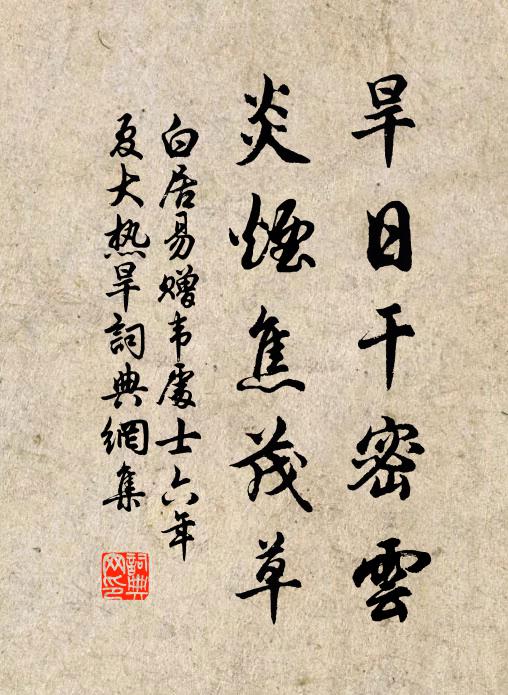 旱日干密雲
炎煙焦茂草
白居易贈韦處士六年
夏大热旱詞典網集
詞典
网印